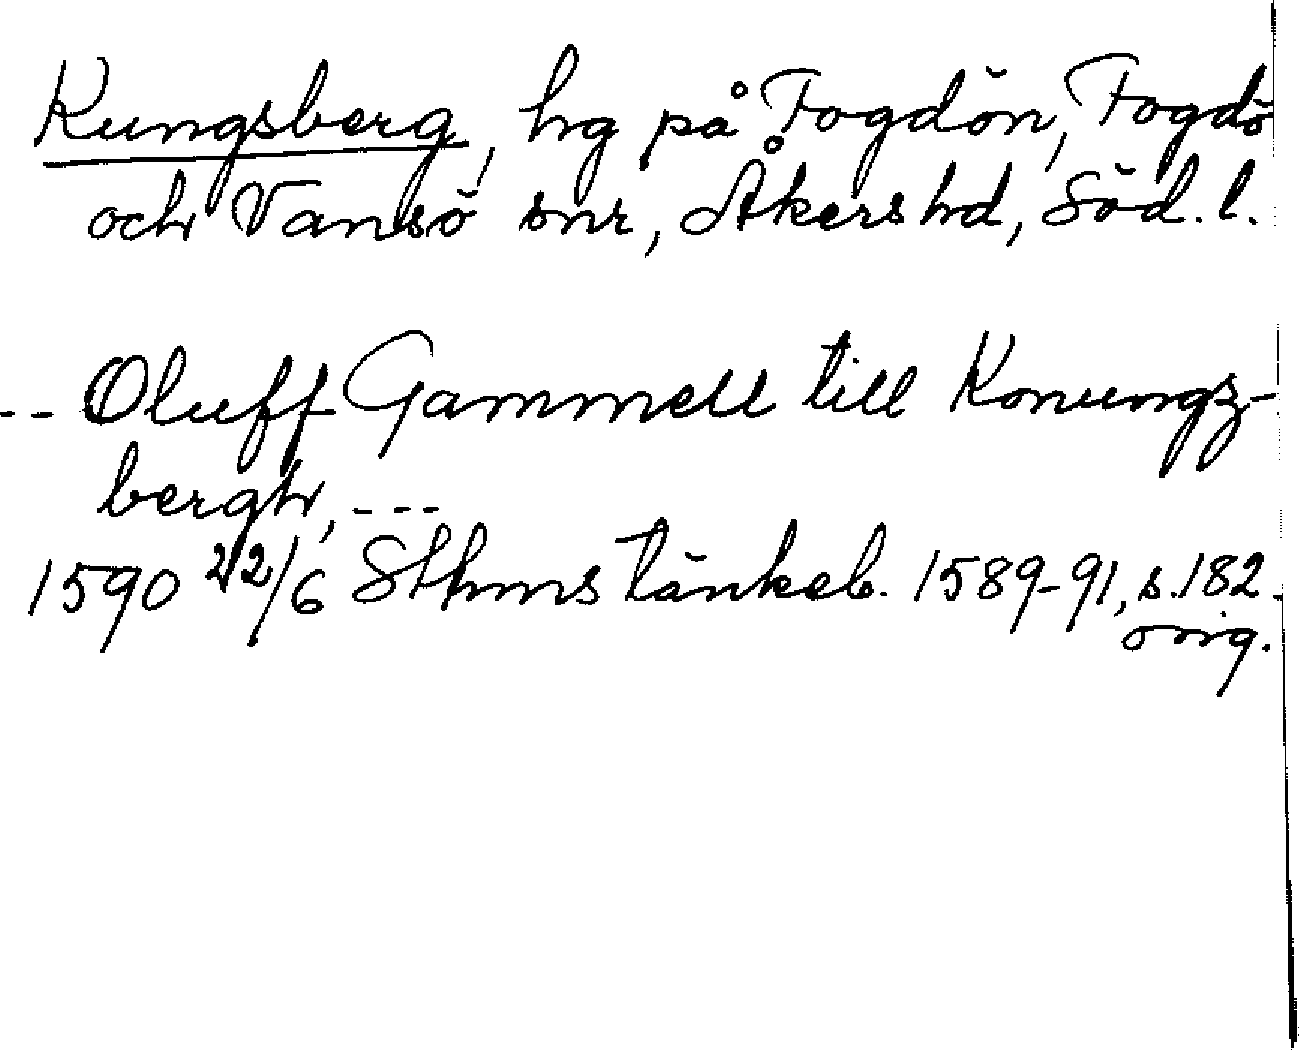 Kungsberg, hg på Fogdön, Fogdö
och Vansö snr, Åkers hd, Söd. l.
-- Oluff Gammell till Konungz-
bergh, ---
1590 22/6 Sthms tänkeb. 1589-91, s. 182.
orig.